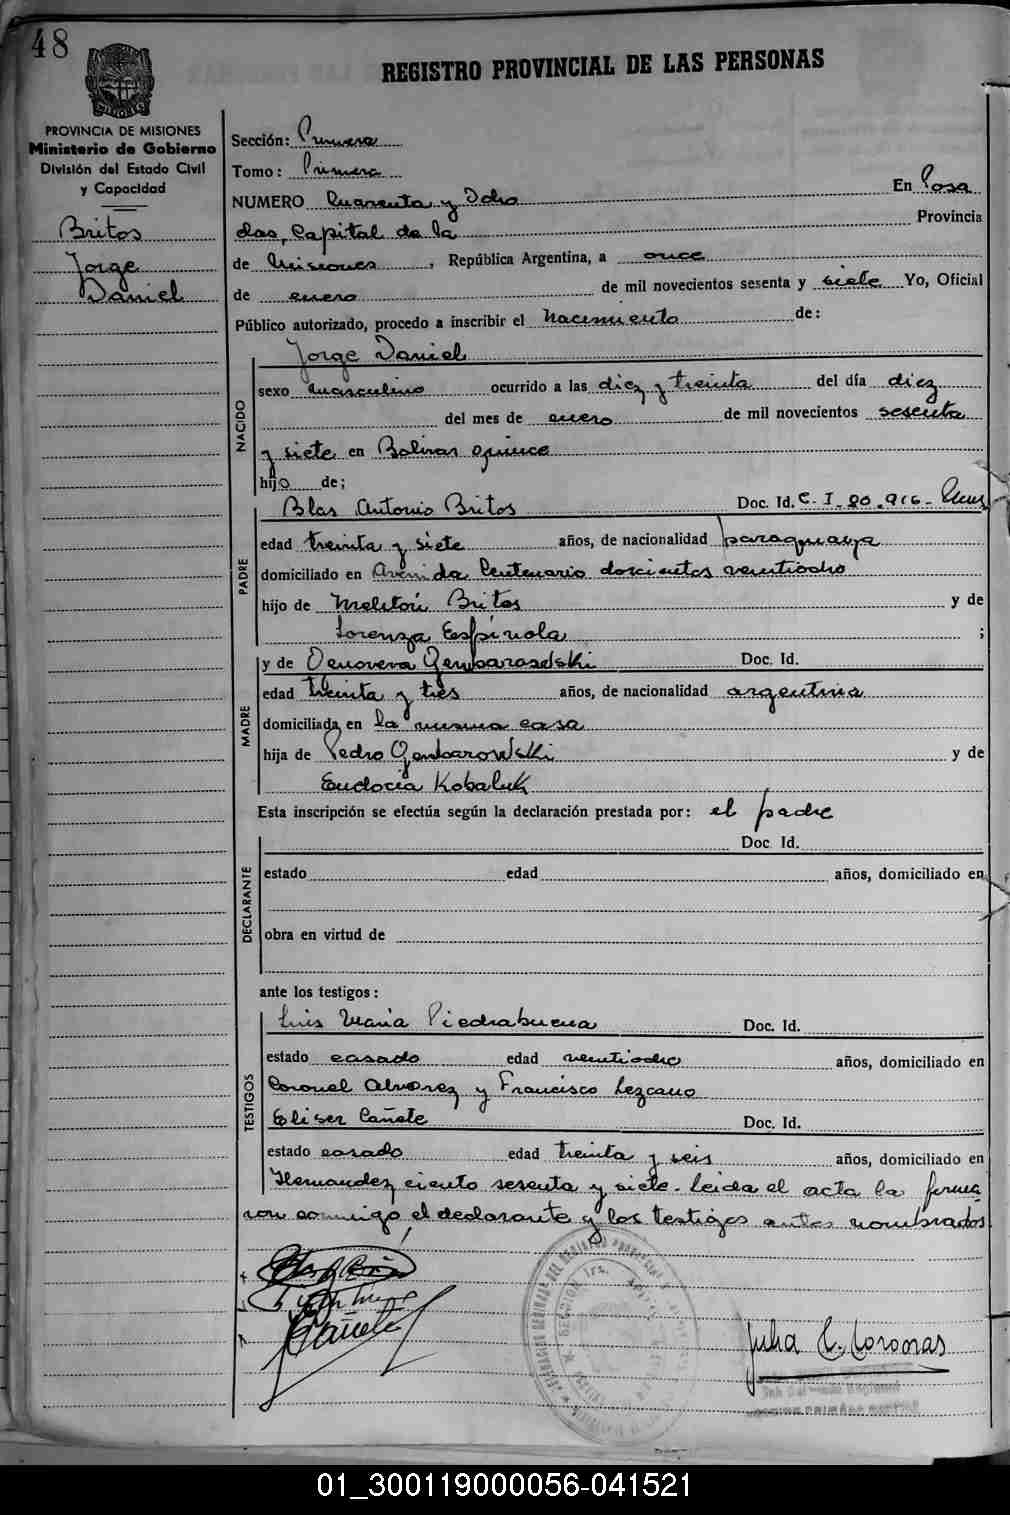 48
REGISTRO PROVINCIAL DE LAS PERSONAS
PROVINCIA DE MISIONES
Ministerio de Gobierno
División del Estado Civil
y Capacidad
Britos
Jorge
Daniel
Sección: Primera
Tomo: Primera
NUMERO Cuarenta y Ocho En Posa
das, Capital de la Provincia
de Misiones, República Argentina, a once
de enero de mil novecientos sesenta y siete Yo, Oficial
Público autorizado, procedo a inscribir el Nacimiento de:
NACIDO
Jorge Daniel
sexo masculino ocurrido a las diez y treinta del día diez
del mes de enero de mil novecientos sesenta
y siete en Bolivar quince
hijo de;
PADRE
Blas Antonio Britos Doc. Id. C. I. 80.916-
edad treinta y siete años, de nacionalidad paraguaya
domiciliado en Avenida Centenario doscientos veintiocho
hijo de Melitón Britos y de
Lorenza Espínola ;
MADRE
y de Doc. Id.
edad treinta y tres años, de nacionalidad argentina
domiciliada en la misma casa
hija de Pedro y de
Eudocia Kobaluk
Esta inscripción se efectúa según la declaración prestada por: el padre
DECLARANTE
Doc. Id.
estado edad años, domiciliado en
obra en virtud de
ante los testigos:
TESTIGOS
Luis Maria Piedrabuena Doc. Id.
estado casado edad veintiocho años, domiciliado en
Coronel Alvarez y Francisco Lezcano
Eliser Cañete Doc. Id.
estado casado edad treinta y seis años, domiciliado en
Hernandez ciento sesenta y siete. Leida el acta la firma
ron conmigo el declarante y los testigos antes nombrados
Cañete
Julia
01_300119000056-041521